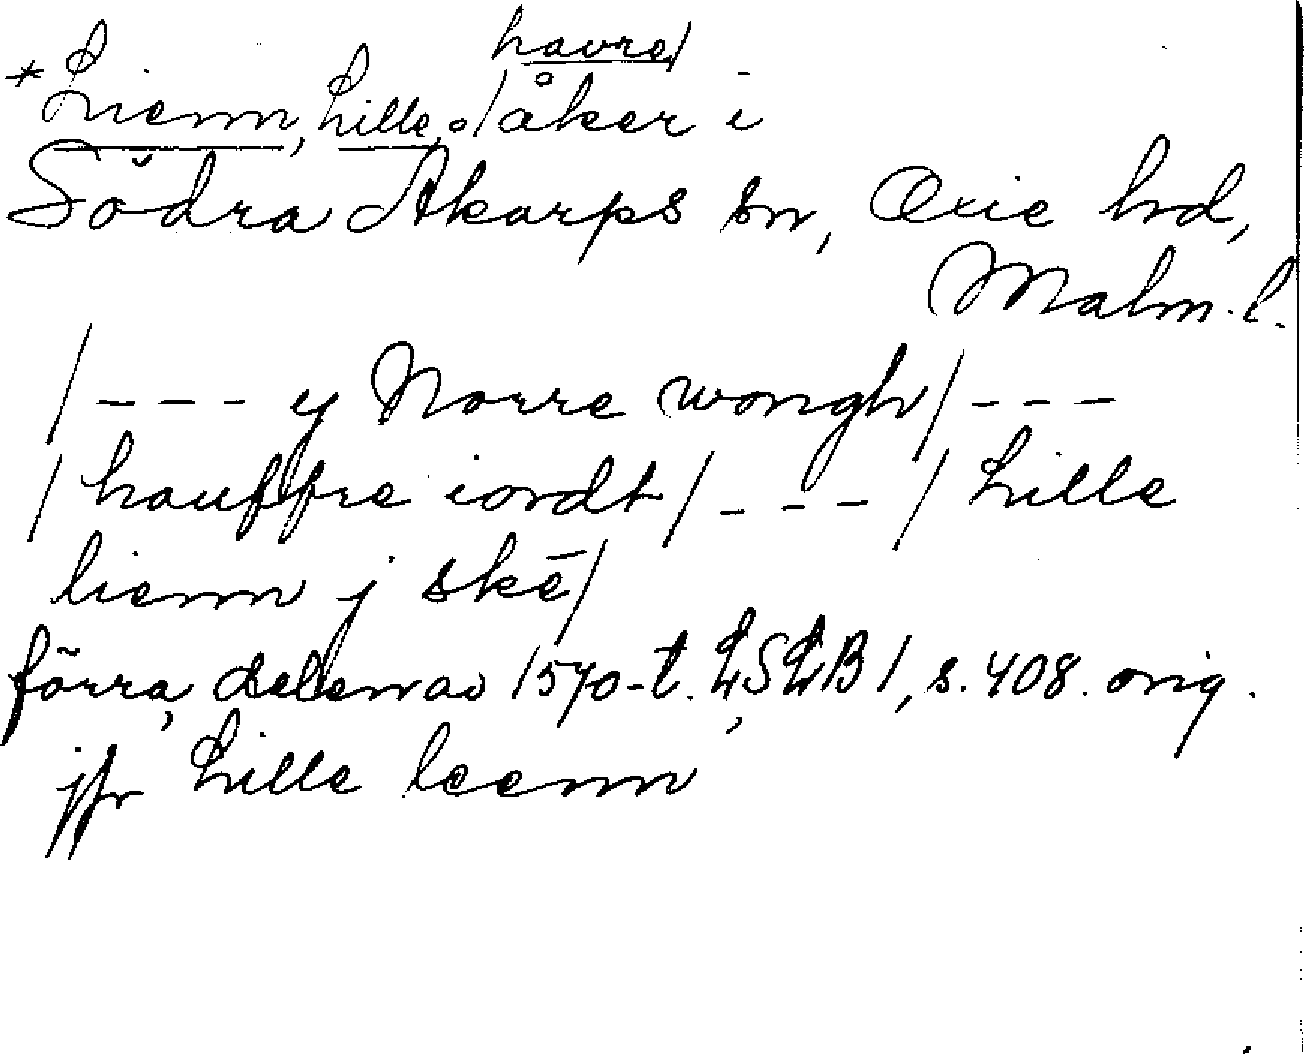 havre/
*Lienn, Lille, o/åker i
Södra Åkarps sn, Oxie hd,
Malm. l.
/--- y Norre wongh/ ---
/hauffre iordt/ --- / Lille
lienn j skē/
förra delen av 1570-t. LSLB 1, s. 408. orig.
jfr Lille leenn